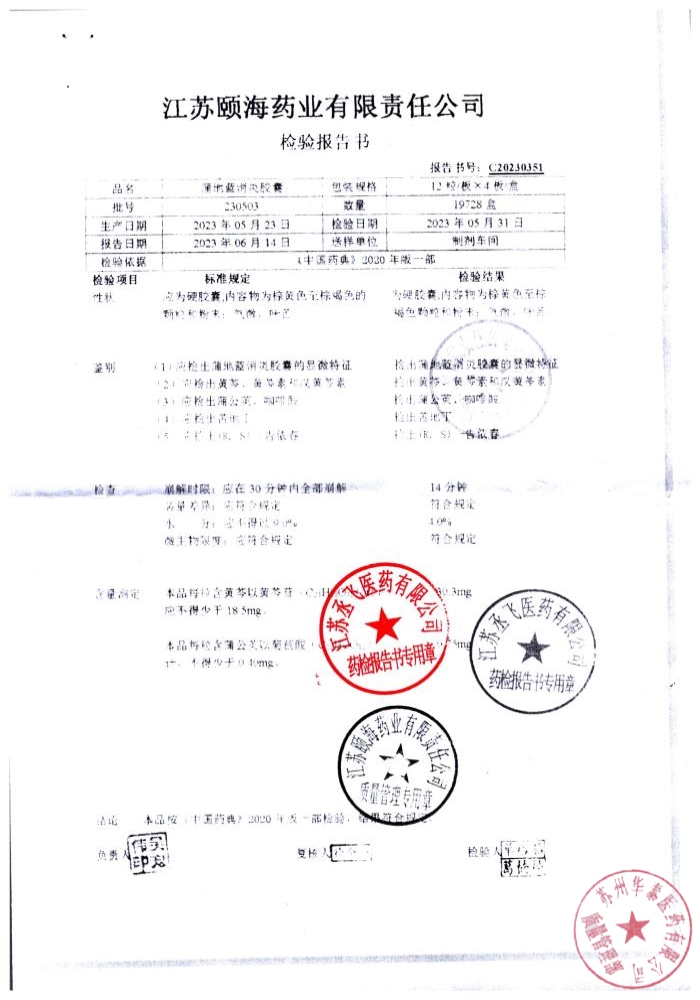 江苏颐海药业有限责任公司
检验报告书
报告书号：C20230351
品名 蒲地蓝消炎胶囊 包装规格 12粒/板×4板/盒
批号 230503 数量 19728盒
生产日期 2023年05月23日 检验日期 2023年05月31日
报告日期 2023年06月14日 送样单位 制剂车间
检验依据 《中国药典》2020年版一部
检验项目 标准规定 检验结果
性状 应为硬胶囊,内容物为棕黄色至棕褐色的 为硬胶囊,内容物为棕黄色至棕
颗粒和粉末；气微，味苦 褐色颗粒和粉末；气微，味苦
鉴别 （1）应检出蒲地蓝消炎胶囊的显微特征 检出蒲地蓝消炎胶囊的显微特征
（2）应检出黄芩、黄芩素和汉黄芩素 检出黄芩、黄芩素和汉黄芩素
（3）应检出蒲公英、咖啡酸 检出蒲公英、咖啡酸
（4）应检出苦地丁 检出苦地丁
（5）应检出(R，S)-告依春 检出(R，S)-告依春
检查 崩解时限：应在30分钟内全部崩解 14分钟
装量差异：应符合规定 符合规定
水 分：应不得过9.0% 4.0%
微生物限度：应符合规定 符合规定
含量测定 本品每粒含黄芩以黄芩苷 mg
应不得少于18.5mg。
本品每粒含蒲公英以菊苣酸 mg
计，不得少于0.40mg。
江苏丞飞医药有限公司
药检报告书专用章
江苏丞飞医药有限公司
药检报告书专用章
江苏颐海药业有限责任公司
质量管理专用章
结论 本品按《中国药典》2020年版一部检验，结果符合规定。
负责人 复核人 检验人
苏州华泰医药有限公司